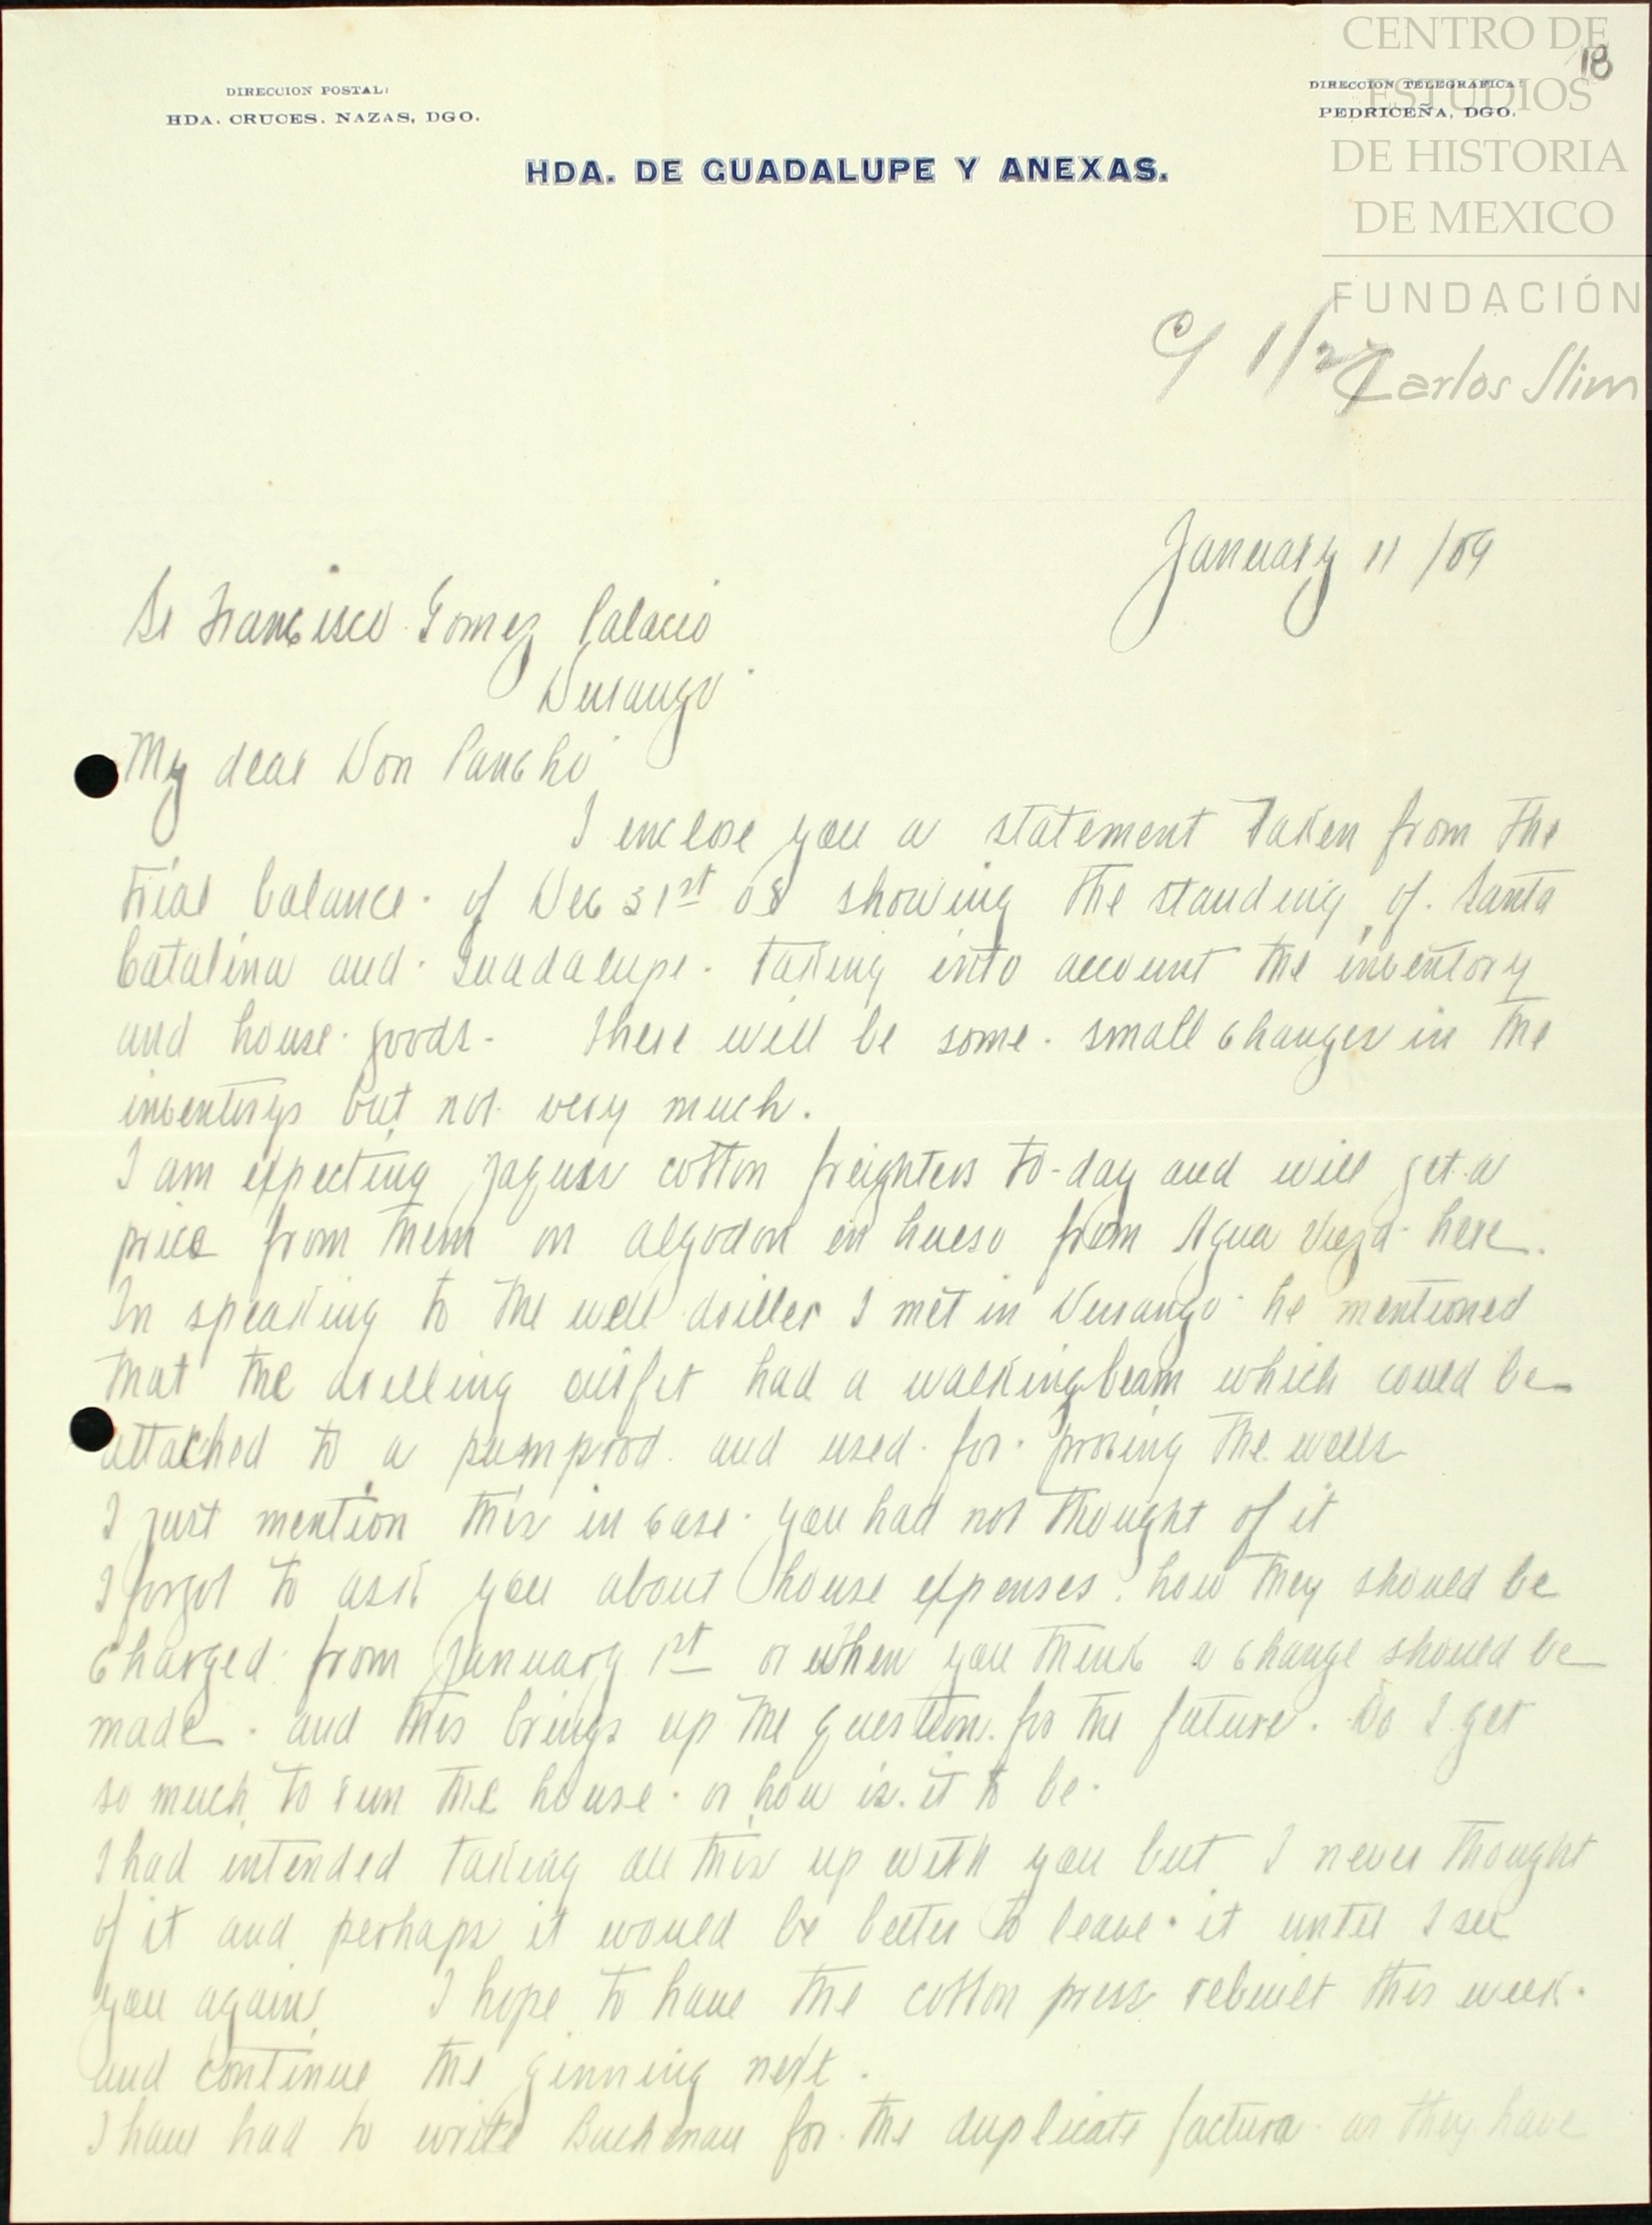 CENTRO DE
ESTUDIOS
DE HISTORIA
DE MEXICO
FUNDACIÓN
Carlos Slim
18
DIRECCION POSTAL:
HDA. CRUCES. NAZAS, DGO.
DIRECCION TELEGRAFICA:
PEDRICEÑA, DGO.
HDA. DE GUADALUPE Y ANEXAS.
C/ 1/27
January 11 /09
Sr Francisco Gomez Palacio
Durango
My dear Don Pancho
I enclose you a statement taken from the
trial balance of Dec 31st 08 showing the standing of Santa
Catalina and Guadalupe. taking into account the inventory
and house goods - There will be some small changes in the
inventorys but not very much.
I am expecting cotton freighters to-day and will get a
price from them on algodon en hueso from Agua Vieja here.
In speaking to the well driller I met in Durango he mentioned
that the drilling outfit had a walkingbeam which could be
attached to a pumprod and used for proving the wells
I just mention this in case you had not thought of it
I forgot to ask you about house expenses. how they should be
charged from January 1st or when you think a change should be
made. and this brings up the question for the future. Do I get
so much to run the house. or how is it to be.
I had intended taking all this up with you but I never thought
of it and perhaps it would be better to leave it until I see
you again. I hope to have the cotton press rebuilt this week.
and continue the ginning next.
I have had to write Buchenau for the duplicate factura as they have